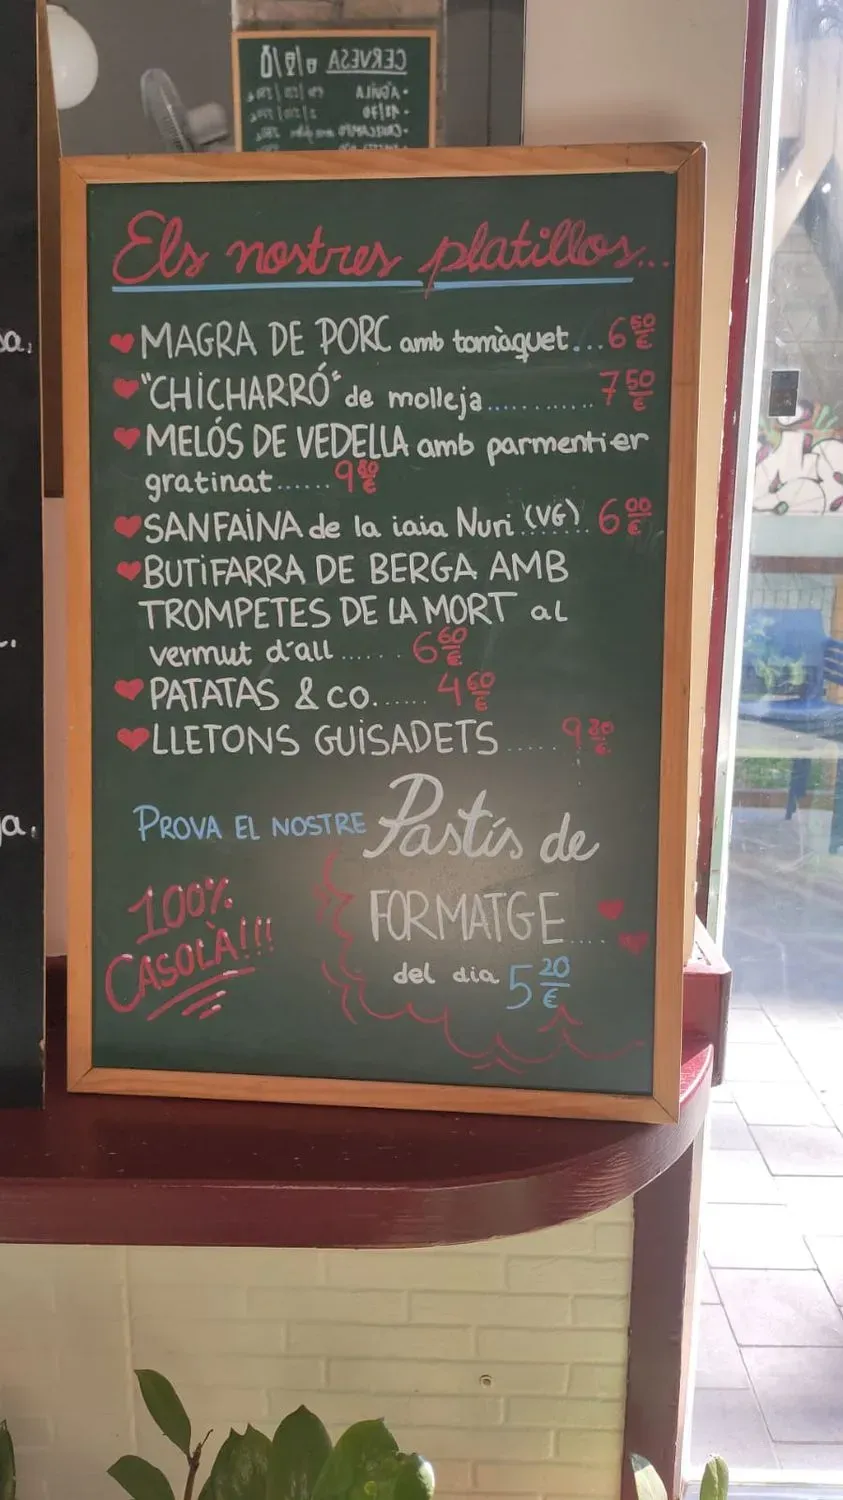 CERVESA
Els nostres platillos...
MAGRA DE PORC amb tomàquet...6 50 €
"CHICHARRÓ" de molleja............7 50 €
MELÓS DE VEDELLA amb parmentier
gratinat......9 80 €
SANFAINA de la iaia Nuri (VG) 6 00 €
BUTIFARRA DE BERGA AMB
TROMPETES DE LA MORT al
vermut d'all......6 60 €
PATATAS & CO......4 60 €
LLETONS GUISADETS.....9 80 €
PROVA EL NOSTRE Pastís de
FORMATGE....
del dia 5 20 €
100%
CASOLÀ!!!